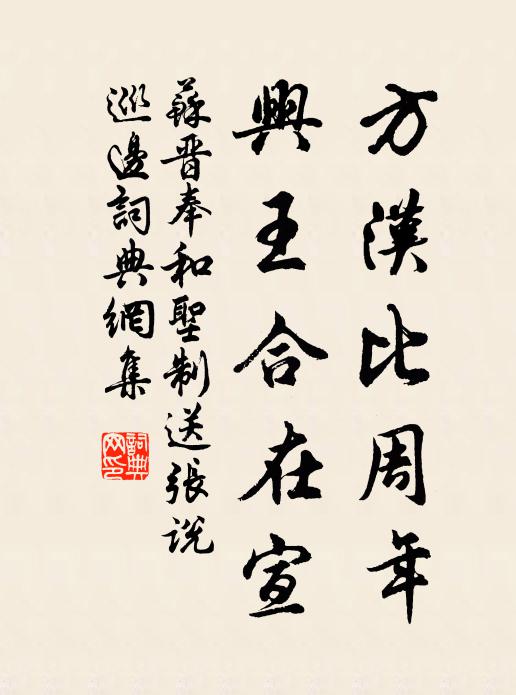 方漢比周年
興王合在宣
蘇晋奉和聖制送張説
巡邊詞典網集
詞典
网印